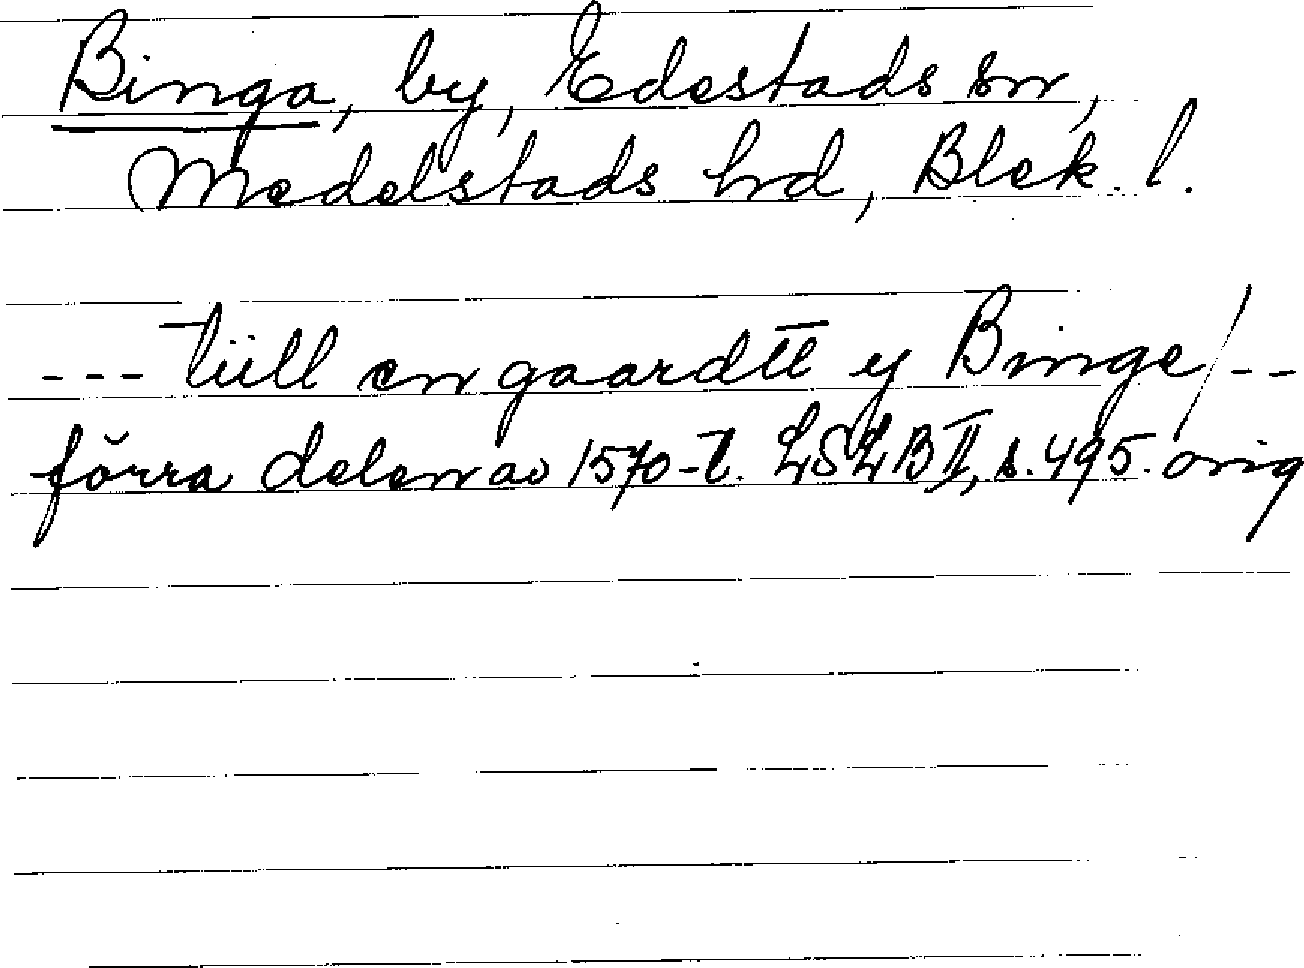 Binga, by, Edestads sn,
Medelstads hrd, Blek. l.
--- tiill en gaardtt y Binge/--
förra delen av 1570-t. LSLB II, s. 495. orig